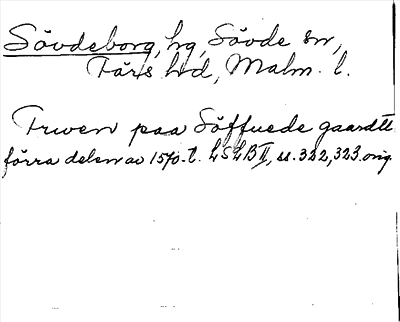 Sövdeborg, hg, Sövde sn,
Färs hd, Malm. l.
Frwen paa Söffuede gaardtt
förra delen av 1570-t. LSLB II, ss. 322, 323. orig.